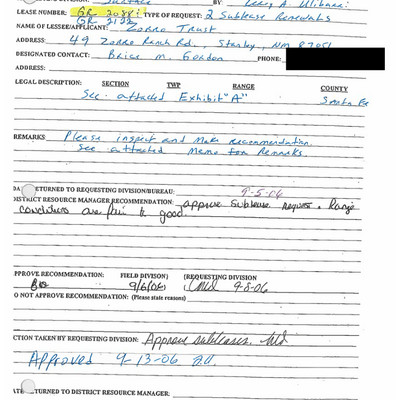 BY
LEASE NUMBER: GR 2088 TYPE OF REQUEST: 2 Sublease Renewals
GR 2122
NAME OF LESSEE/APPLICANT: Zorro Trust
ADDRESS: 49 Zorro Ranch Rd., Stanley, NM 87056
DESIGNATED CONTACT: Brice M. Gordon PHONE:
ADDRESS:
LEGAL DESCRIPTION: SECTION TWP RANGE COUNTY
See attached Exhibit "A" Santa Fe
REMARKS Please inspect and make recommendation.
See attached Memo for Remarks.
RETURNED TO REQUESTING DIVISION/BUREAU: 9-5-06
DISTRICT RESOURCE MANAGER RECOMMENDATION: approve sublease request. Range
conditions are fair to good.
PPROVE RECOMMENDATION: FIELD DIVISION) (REQUESTING DIVISION)
9/6/06 9-8-06
O NOT APPROVE RECOMMENDATION: (Please state reasons)
CTION TAKEN BY REQUESTING DIVISION: Approve subleases.
Approved 9-13-06
ATE RETURNED TO DISTRICT RESOURCE MANAGER: